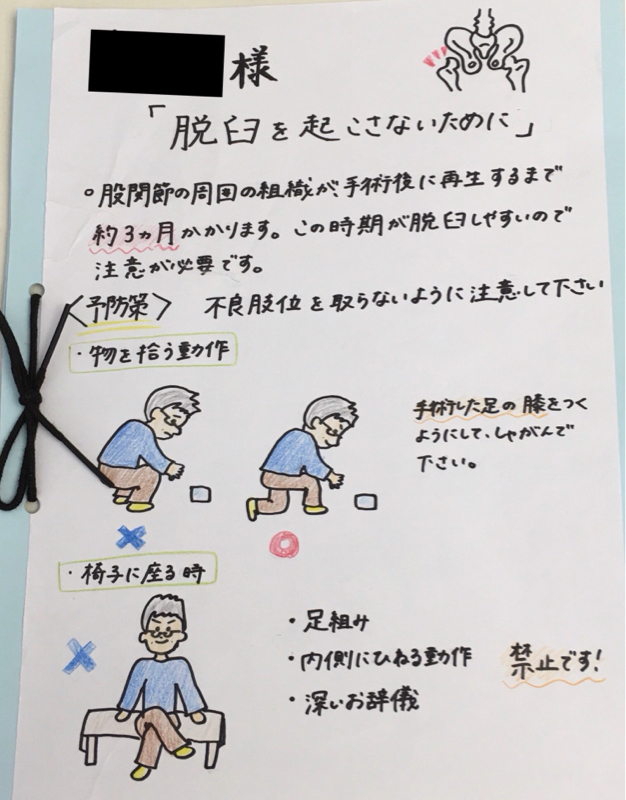 様
「脱臼を起こさないために」
○股関節の周囲の組織が、手術後に再生するまで
約3ヵ月かかります。この時期が脱臼しやすいので
注意が必要です。
〈予防策〉 不良肢位を取らないように注意して下さい
・物を拾う動作
手術した足の膝をつく
ようにして、しゃがんで
下さい。
・椅子に座る時
・足組み
・内側にひねる動作 禁止です!
・深いお辞儀